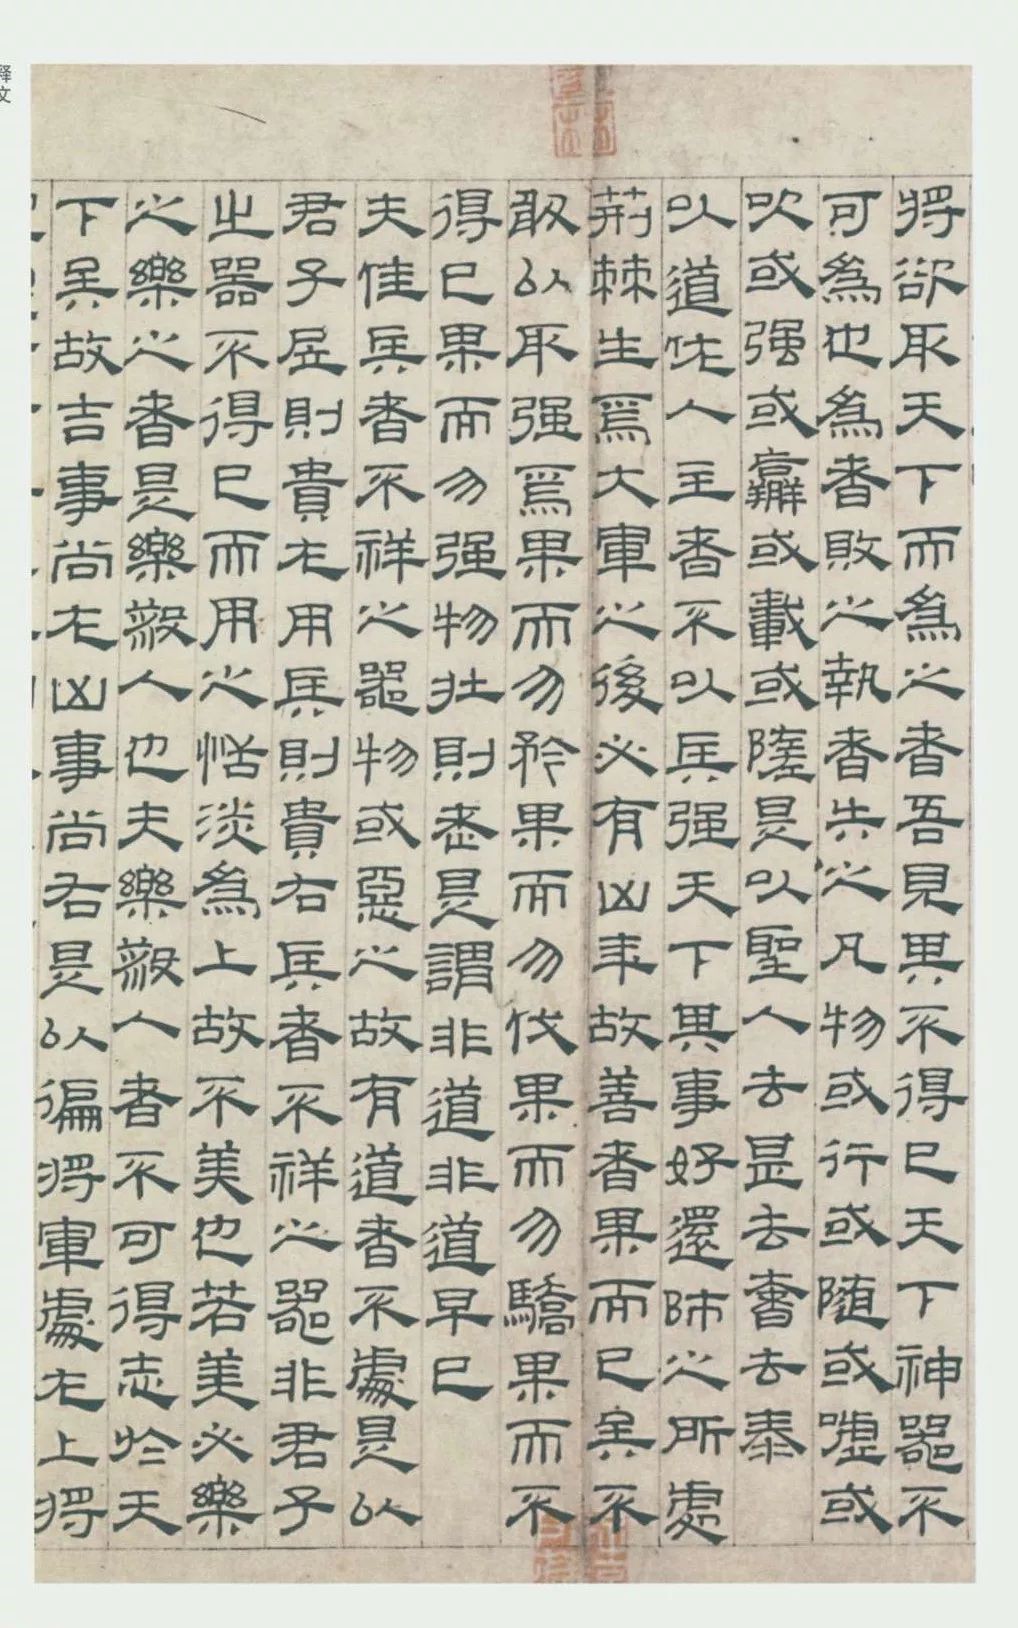 將欲取天下而為之者吾見其不得已天下神器不
可為也為者敗之執者失之凡物或行或随或噓或
吹或强或羸或載或隳是以聖人去甚去奢去泰
以道佐人主者不以兵强天下其事好還師之所處
荊棘生焉大軍之後必有凶年故善者果而已矣不
敢以取强焉果而勿矜果而勿伐果而勿驕果而不
得已果而勿强物壯則老是謂非道非道早已
夫佳兵者不祥之器物或惡之故有道者不處是以
君子居則貴左用兵則貴右兵者不祥之器非君子
之器不得已而用之恬淡為上故不美也若美必樂
之樂之者是樂殺人也夫樂殺人者不可得志於天
下矣故吉事尚左凶事尚右是以偏將軍處左上將
释文